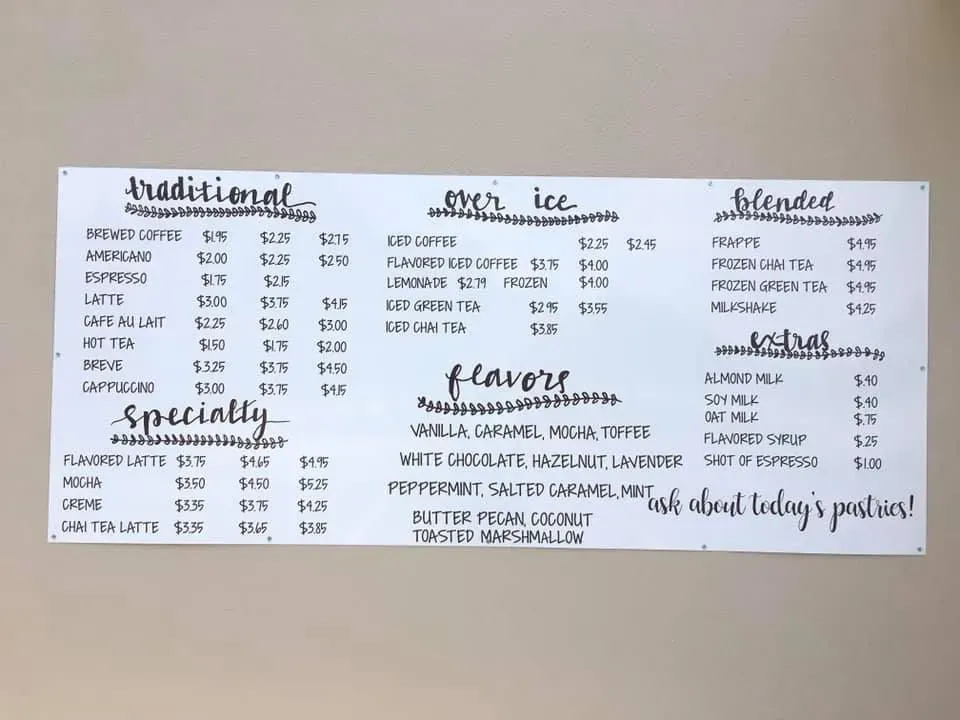 traditional
BREWED COFFEE $1.95 $2.25 $2.75
AMERICANO $2.00 $2.25 $2.50
ESPRESSO $1.75 $2.15
LATTE $3.00 $3.75 $4.15
CAFE AU LAIT $2.25 $2.60 $3.00
HOT TEA $1.50 $1.75 $2.00
BREVE $3.25 $3.75 $4.50
CAPPUCCINO $3.00 $3.75 $4.15
specialty
FLAVORED LATTE $3.75 $4.65 $4.95
MOCHA $3.50 $4.50 $5.25
CREME $3.35 $3.75 $4.25
CHAI TEA LATTE $3.35 $3.65 $3.85
over ice
ICED COFFEE $2.25 $2.45
FLAVORED ICED COFFEE $3.75 $4.00
LEMONADE $2.79 FROZEN $4.00
ICED GREEN TEA $2.95 $3.55
ICED CHAI TEA $3.85
flavors
VANILLA, CARAMEL, MOCHA, TOFFEE
WHITE CHOCOLATE, HAZELNUT, LAVENDER
PEPPERMINT, SALTED CARAMEL, MINT
BUTTER PECAN, COCONUT
TOASTED MARSHMALLOW
blended
FRAPPE $4.95
FROZEN CHAI TEA $4.95
FROZEN GREEN TEA $4.95
MILKSHAKE $4.25
extras
ALMOND MILK $.40
SOY MILK $.40
OAT MILK $.75
FLAVORED SYRUP $.25
SHOT OF ESPRESSO $1.00
ask about today's pastries!